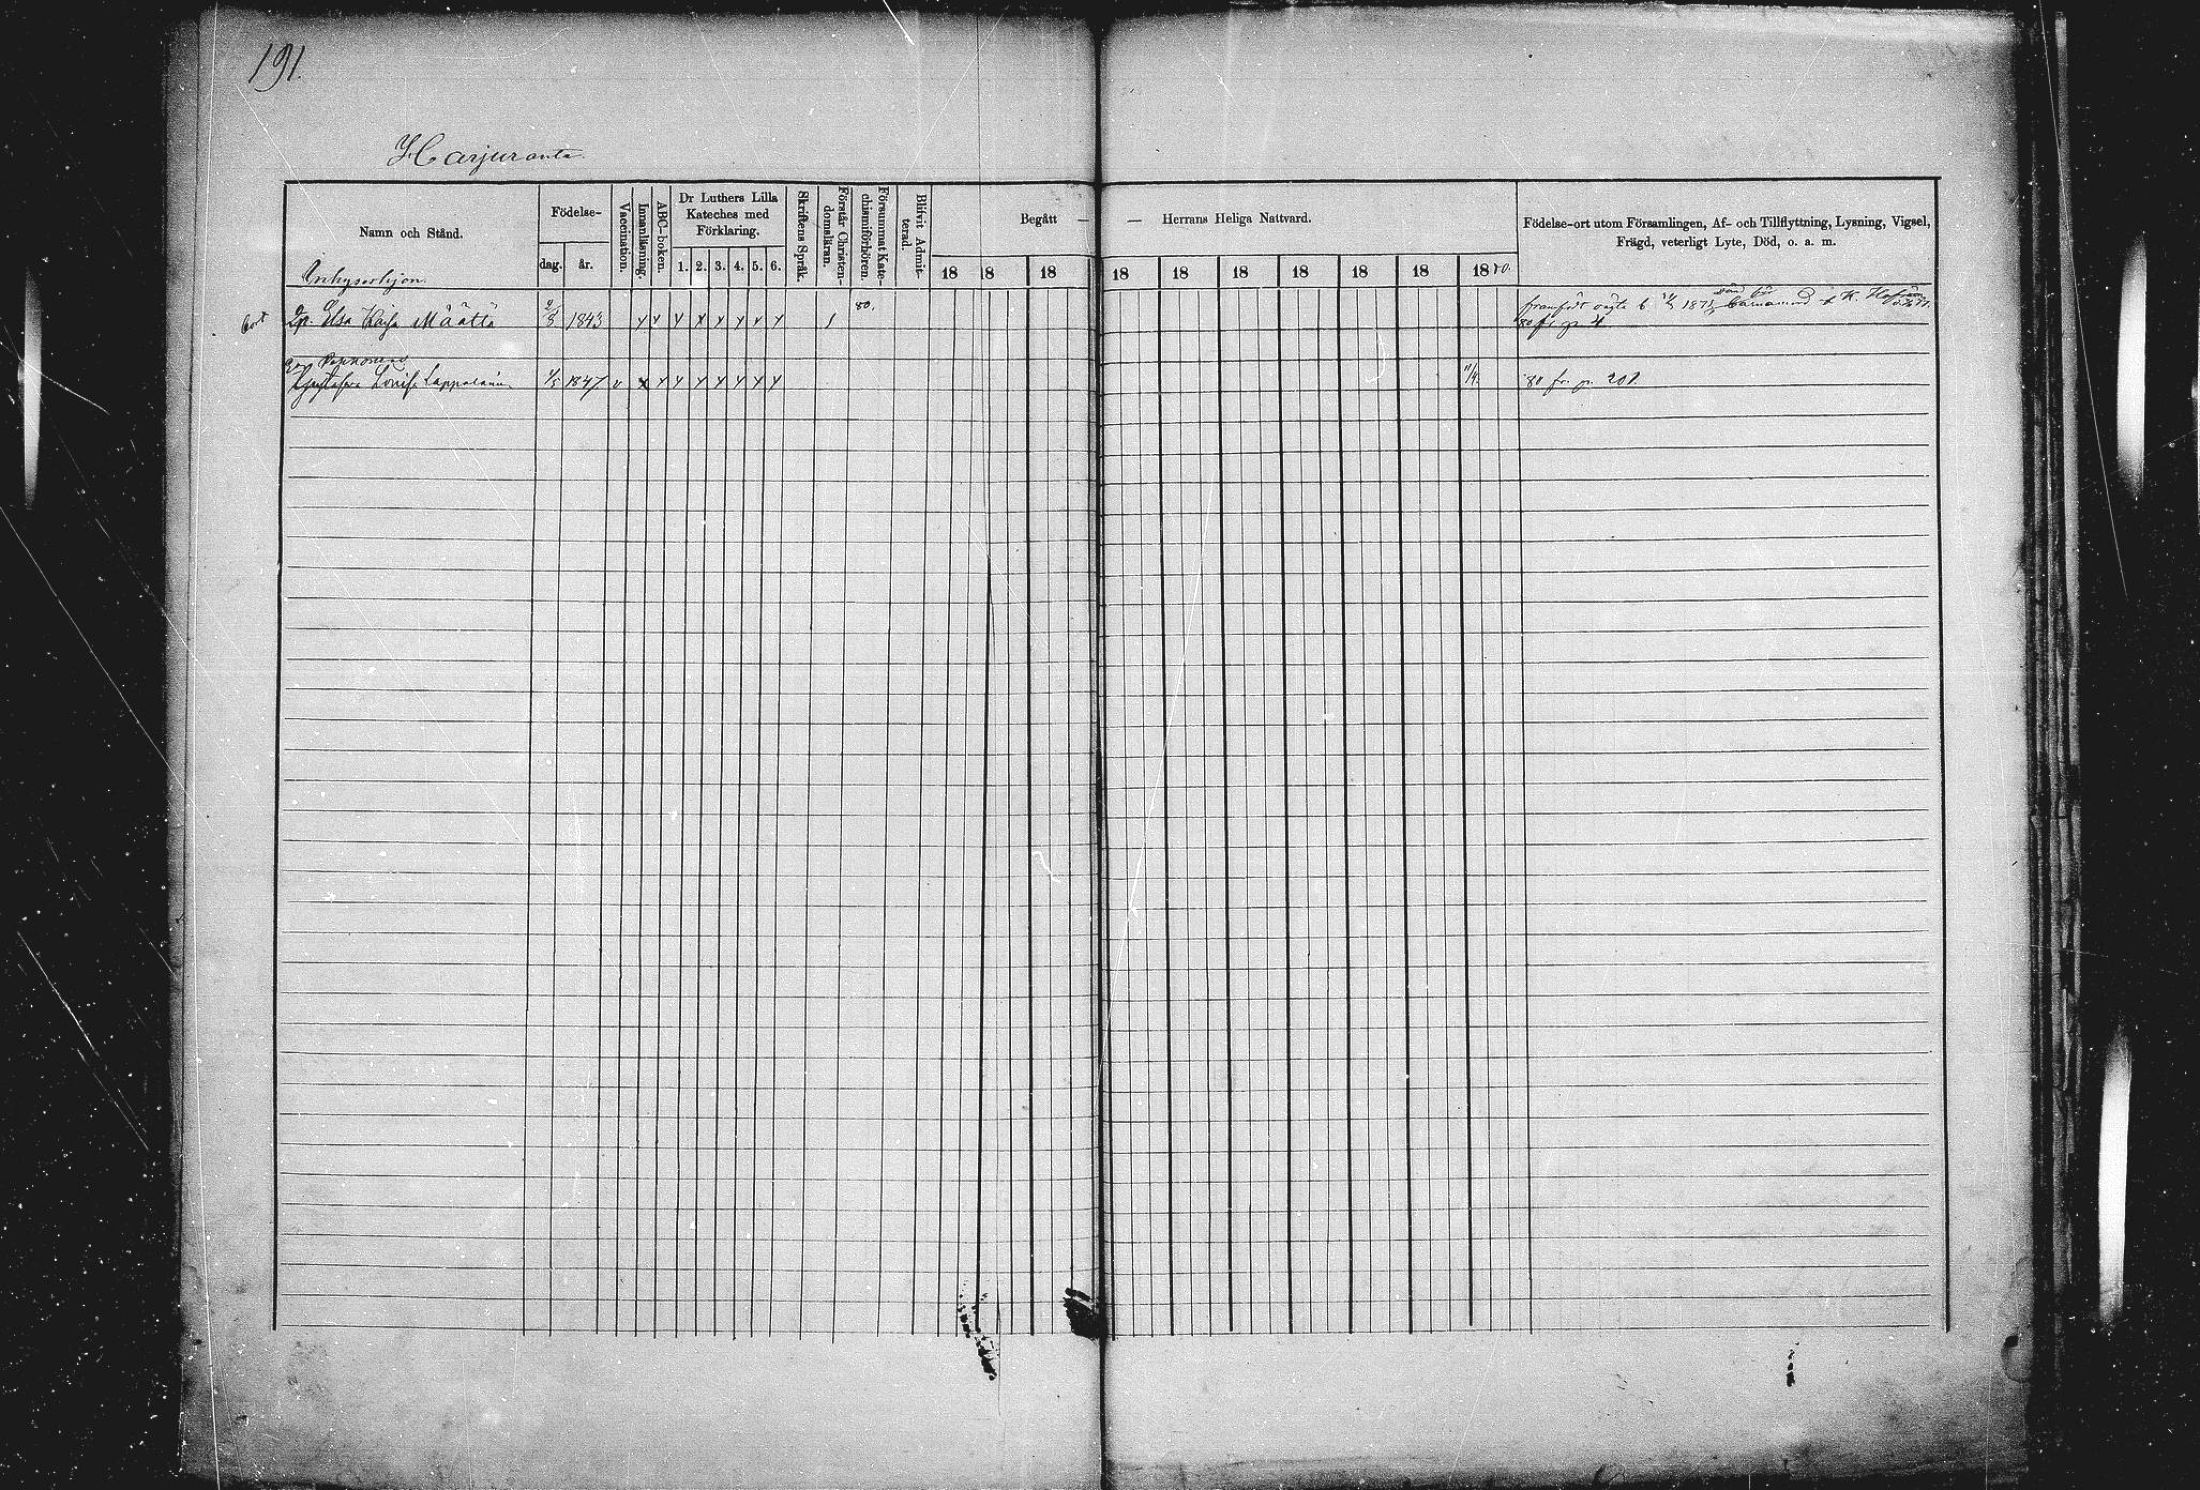 191.
Harjuranta
Namn och Stånd.
Födelse-
dag.
år.
Vaccination.
Innanläsning.
ABC-boken.
Dr Luthers Lilla
Kateches med
Förklaring.
1. 2. 3. 4. 5. 6.
Skriftens Språk.
Förstår Christen-
domsläran.
Försummat Kate-
chismiförhören.
Blifvit Admit-
terad
Begått — — Herrans Heliga Nattvard.
18 18 18 18 18 18 18 18 18 1880.
Födelse-ort utom Församlingen, Af- och Tillflyttning, Lysning, Vigsel,
Frägd, veterligt Lyte, Död, o. a. m.
Inhyseshjon
bort Elsa Kaisa Määttä 9/8 1843 80.
80 fr. p. 4
Gustafva Lovisa Lappalainen 1/5 1847 v 11/4. 80 fr. p. 201.